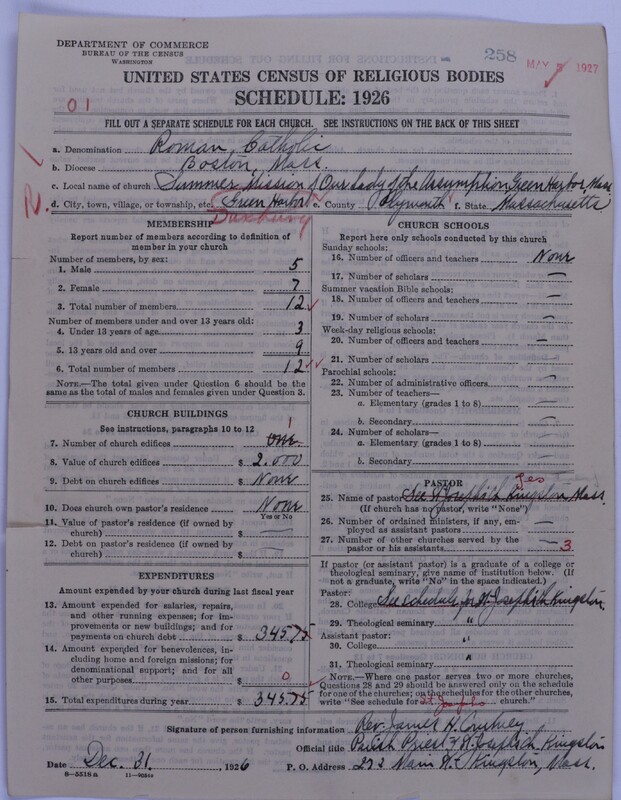 DEPARTMENT OF COMMERCE
BUREAU OF THE CENSUS
WASHINGTON
258
MAY 7 1927
UNITED STATES CENSUS OF RELIGIOUS BODIES
SCHEDULE: 1926
01
FILL OUT A SEPARATE SCHEDULE FOR EACH CHURCH. SEE INSTRUCTIONS ON THE BACK OF THIS SHEET
a. Denomination Roman Catholic
b. Diocese Boston, Mass.
c. Local name of church Summer Mission of Our Lady of the Assumption Green Harbor, Mass
R.
d. City, town, village, or township, etc. Green Harbor e. County Plymouth f. State Massachusetts
Duxbury
MEMBERSHIP
Report number of members according to definition of
member in your church
Number of members, by sex:
1. Male 5
2. Female 7
3. Total number of members 12
Number of members under and over 13 years old:
4. Under 13 years of age 3
5. 13 years old and over 9
6. Total number of members 12
NOTE.—The total given under Question 6 should be the
same as the total of males and females given under Question 3.
CHURCH BUILDINGS
See instructions, paragraphs 10 to 12
1
7. Number of church edifices one
8. Value of church edifices $ 2.000
9. Debt on church edifices $ None
10. Does church own pastor's residence None
Yes or No
11. Value of pastor's residence (if owned by
church) $
12. Debt on pastor's residence (if owned by
church) $
EXPENDITURES
Amount expended by your church during last fiscal year
13. Amount expended for salaries, repairs,
and other running expenses; for im-
provements or new buildings; and for
payments on church debt $ 345.75
14. Amount expended for benevolences,
including home and foreign missions; for
denominational support; and for all
other purposes $ 0
15. Total expenditures during year $ 345.75
CHURCH SCHOOLS
Report here only schools conducted by this church
Sunday schools:
16. Number of officers and teachers None
17. Number of scholars —
Summer vacation Bible schools:
18. Number of officers and teachers —
19. Number of scholars —
Week-day religious schools:
20. Number of officers and teachers —
21. Number of scholars —
Parochial schools:
22. Number of administrative officers —
23. Number of teachers—
a. Elementary (grades 1 to 8) —
b. Secondary —
24. Number of scholars—
a. Elementary (grades 1 to 8) —
b. Secondary —
PASTOR
Yes
25. Name of pastor See St Josephs Kingston, Mass.
(If church has no pastor, write "None")
26. Number of ordained ministers, if any, em-
ployed as assistant pastors —
27. Number of other churches served by the
pastor or his assistants 3
If pastor (or assistant pastor) is a graduate of a college or
theological seminary, give name of institution below. (If
not a graduate, write "No" in the space indicated.)
Pastor:
28. College See schedule for St Josephs Kingston
29. Theological seminary "
Assistant pastor:
30. College "
31. Theological seminary "
NOTE.—Where one pastor serves two or more churches,
Questions 28 and 29 should be answered only on the schedule
for one of the churches; on the schedules for the other churches,
write "See schedule for St. Josephs church."
Signature of person furnishing information Rev. James H.
Official title Parish Priest of St. Josephs Kingston
Date Dec. 31, 1926 P. O. Address 272 Main St. Kingston, Mass.
8—5518 a